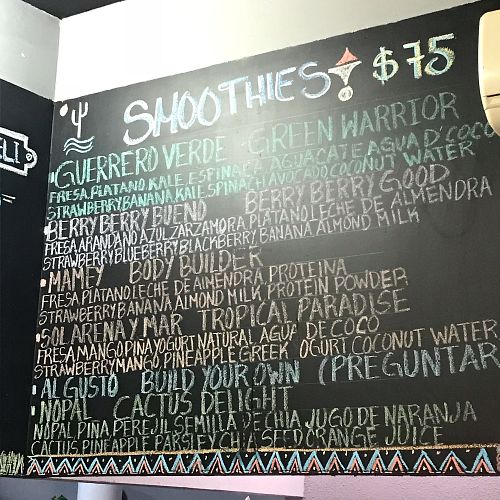 ELI
SMOOTHIES $75
GUERRERO VERDE GREEN WARRIOR
FRESA PLATANO KALE ESPINACA AGUACATE AGUA D'COCO
STRAWBERRY BANANA KALE SPINACH AVOCADO COCONUT WATER
BERRY BERRY BUENO BERRY BERRY GOOD
FRESA ARANDANO AZUL ZARZAMORA PLATANO LECHE DE ALMENDRA
STRAWBERRY BLUEBERRY BLACKBERRY BANANA ALMOND MILK
MAMEY BODY BUILDER
FRESA PLATANO LECHE DE ALMENDRA PROTEINA
STRAWBERRY BANANA ALMOND MILK PROTEIN POWDER
SOL ARENA Y MAR TROPICAL PARADISE
FRESA MANGO PINA YOGURT NATURAL AGUA DE COCO
STRAWBERRY MANGO PINEAPPLE GREEK OGURT COCONUT WATER
AL GUSTO BUILD YOUR OWN (PREGUNTAR
NOPAL CACTUS DELIGHT
NOPAL PINA PEREJIL SEMILLA DE CHIA JUGO DE NARANJA
CACTUS PINEAPPLE PARSLEY CHIA SEED ORANGE JUICE